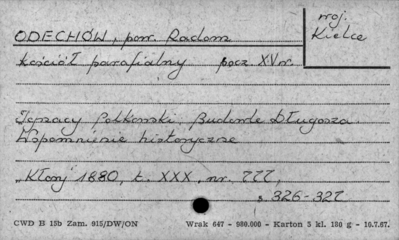 ODECHÓW, pow. Radom
woj. Kielce
Kościół parafialny pocz. XV w.
Ignacy Polkowski, Budowle Długosza.
Wspomnienie historyczne
"Kłosy" 1880, t. XXX, nr. 777,
s. 326-327
CWD B 15b Zam. 915/DW/ON Wrak 647 - 980.000 - Karton 5 kl. 180 g - 10.7.67.